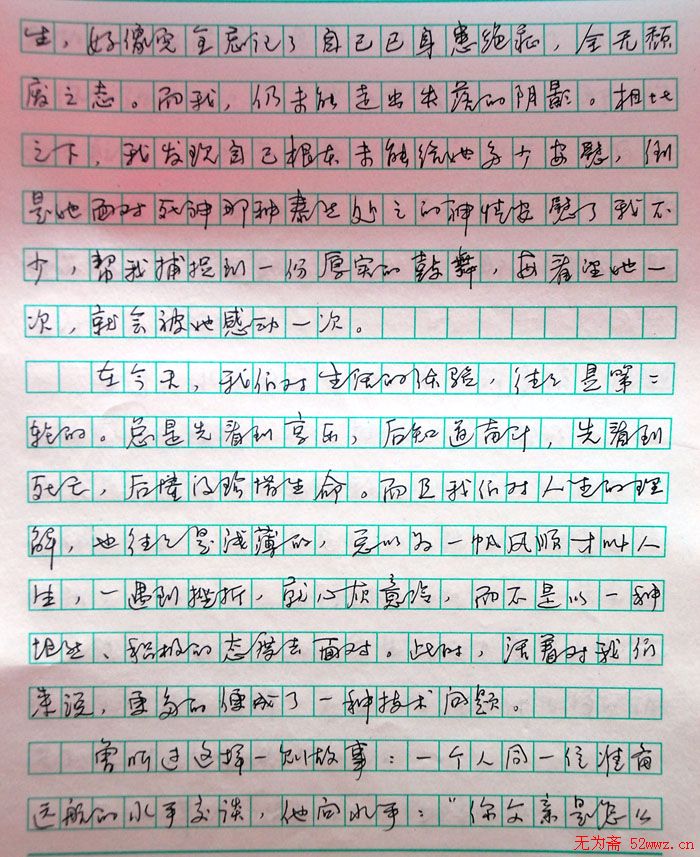 生，好像完全忘记了自己已身患绝症，全无颓
废之态。而我，仍未能走出失落的阴影。相比
之下，我发现自己根本未能给她多少安慰，倒
是她面对死神那种泰然处之的神情安慰了我不
少，帮我捕捉到一份厚实的鼓舞，每看望她一
次，就会被她感动一次。
在今天，我们对生活的体验，往往是第二
轮的。总是先看到享乐，后知道奋斗，先看到
死亡，后懂得珍惜生命。而且我们对人生的理
解，也往往是浅薄的，总以为一帆风顺才叫人
生，一遇到挫折，就心灰意冷，而不是以一种
坦然、积极的态度去面对。此时，活着对我们
来说，更多的便成了一种技术问题。
曾听过这样一则故事：一个人同一位准备
远航的水手交谈，他问水手：“你父亲是怎么
无为斋 52wwz.cn